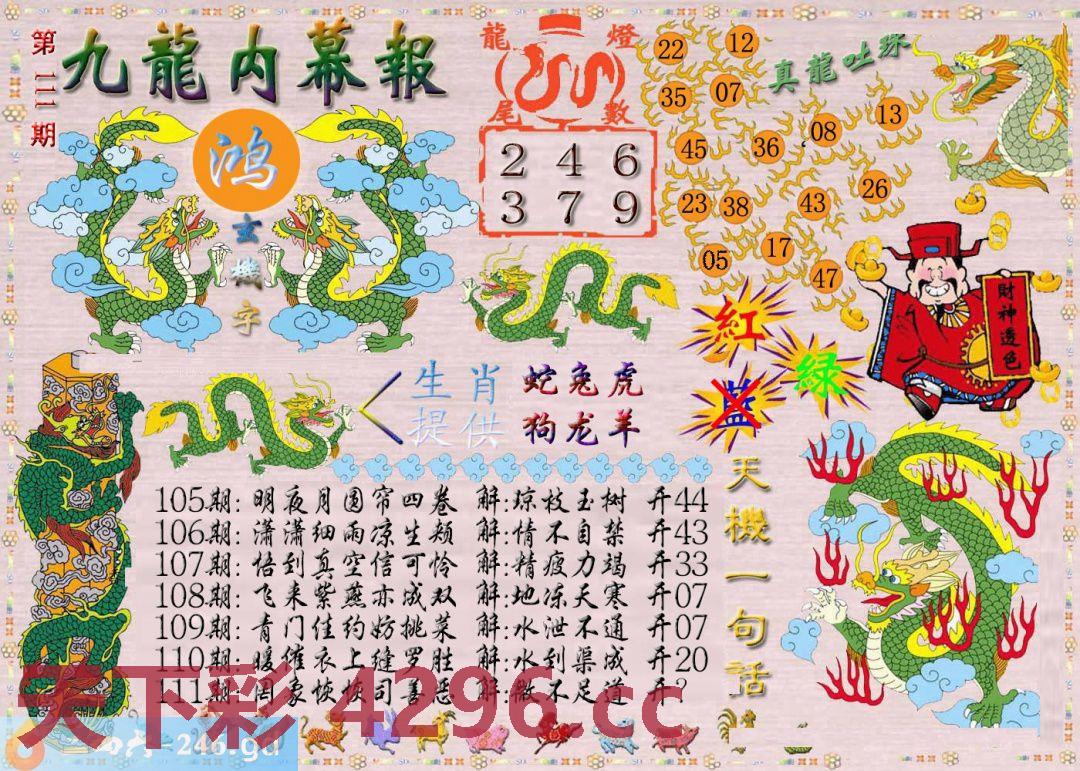 第一一一期
九龍內幕報
鸿
玄機字
龍燈
尾數
2 4 6
3 7 9
真龍吐珠
22 12
35 07
45 36 08 13
23 38 43 26
05 17 47
紅
綠
蓝
財神透色
生肖 蛇兔虎
提供 狗龙羊
105期: 明夜月圆帘四卷 解:琼枝玉树 开44
106期: 潇潇细雨凉生颊 解:情不自禁 开43
107期: 悟到真空信可怜 解:精疲力竭 开33
108期: 飞来紫燕亦成双 解:地冻天寒 开07
109期: 青门佳约妨挑菜 解:水泄不通 开07
110期: 暖催衣上缝罗胜 解:水到渠成 开20
111期: 罔象恢恢司善恶 解:微不足道 开?
天機一句話
天下彩 4296.cc
=246.gd